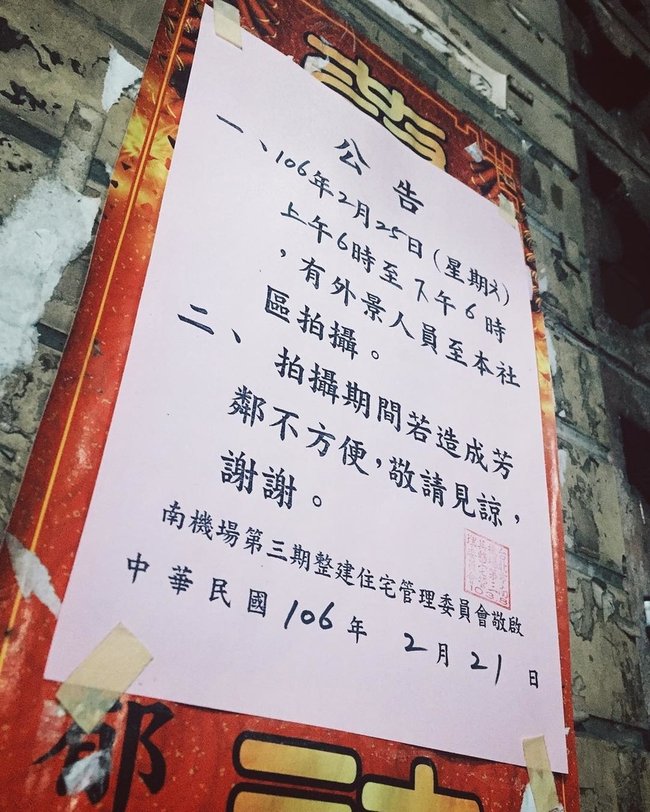 公告
一、106年2月25日(星期六)
上午6時至下午6時
，有外景人員至本社
區拍攝。
二、拍攝期間若造成芳
鄰不方便，敬請見諒，
謝謝。
南機場第三期整建住宅管理委員會敬啟
中華民國106年2月21日